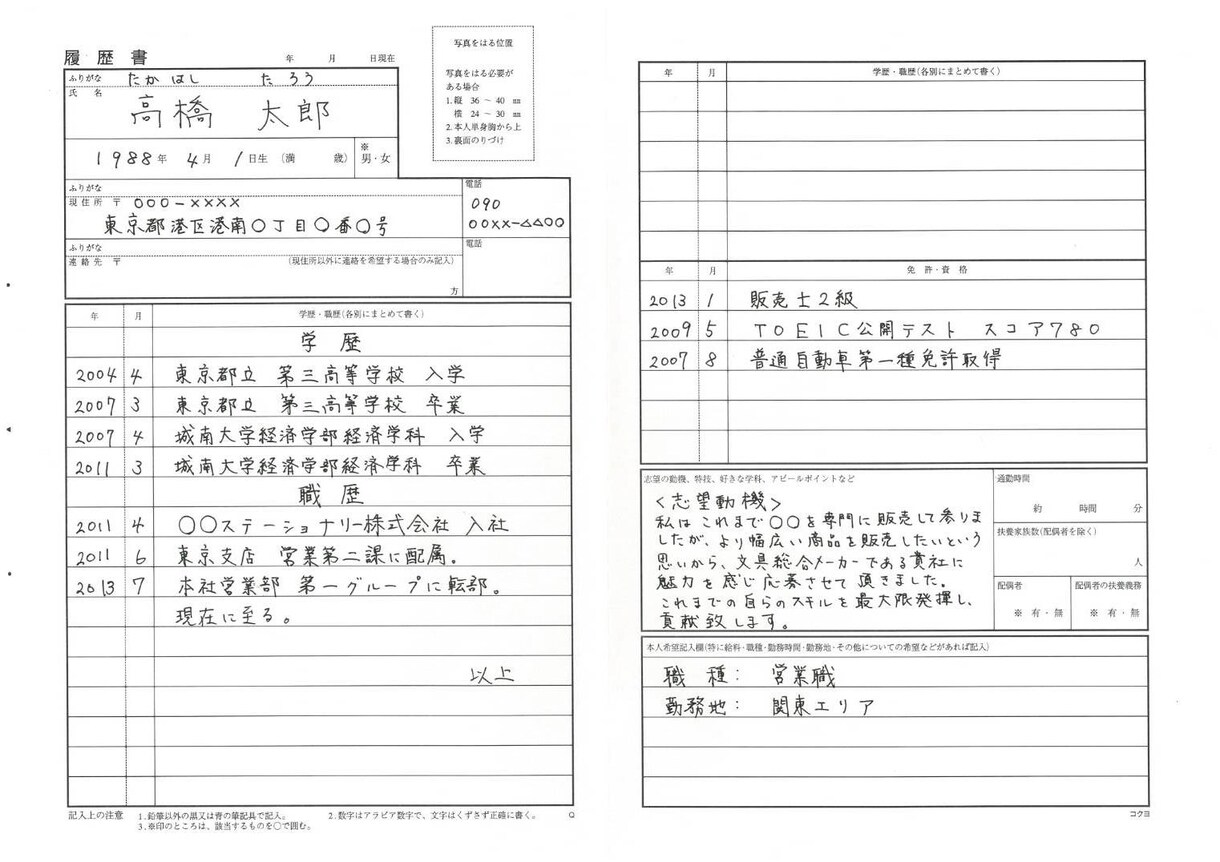 履歴書 年 月 日現在
ふりがな たかはし たろう
氏名
高橋 太郎
1988年 4月 1日生 (満 歳) ※ 男・女
写真をはる位置
写真をはる必要が
ある場合
1.縦 36 ～ 40 ㎜
横 24 ～ 30 ㎜
2.本人単身胸から上
3.裏面のりづけ
ふりがな
現住所 〒 000-××××
東京都港区港南○丁目○番○号
電話
090
00××-△△00
ふりがな
連絡先 〒 (現住所以外に連絡を希望する場合のみ記入)
方
電話
年 月 学歴・職歴(各別にまとめて書く)
学 歴
2004 4 東京都立 第三高等学校 入学
2007 3 東京都立 第三高等学校 卒業
2007 4 城南大学経済学部経済学科 入学
2011 3 城南大学経済学部経済学科 卒業
職 歴
2011 4 ○○ステーショナリー株式会社 入社
2011 6 東京支店 営業第二課に配属。
2013 7 本社営業部 第一グループに転部。
現在に至る。
以上
記入上の注意 1.鉛筆以外の黒又は青の筆記具で記入。 2.数字はアラビア数字で、文字はくずさず正確に書く。 Q
3.※印のところは、該当するものを○で囲む。
年 月 学歴・職歴(各別にまとめて書く)
年 月 免許・資格
2013 1 販売士2級
2009 5 TOEIC公開テスト スコア780
2007 8 普通自動車第一種免許取得
志望の動機、特技、好きな学科、アピールポイントなど
<志望動機>
私はこれまで○○を専門に販売して参りま
したが、より幅広い商品を販売したいという
思いから、文具総合メーカーである貴社に
魅力を感じ応募させて頂きました。
これまでの自らのスキルを最大限発揮し、
貢献致します。
通勤時間
約 時間 分
扶養家族数(配偶者を除く)
人
配偶者
※ 有・無
配偶者の扶養義務
※ 有・無
本人希望記入欄(特に給料・職種・勤務時間・勤務地・その他についての希望などがあれば記入)
職 種： 営業職
勤務地： 関東エリア
コクヨ